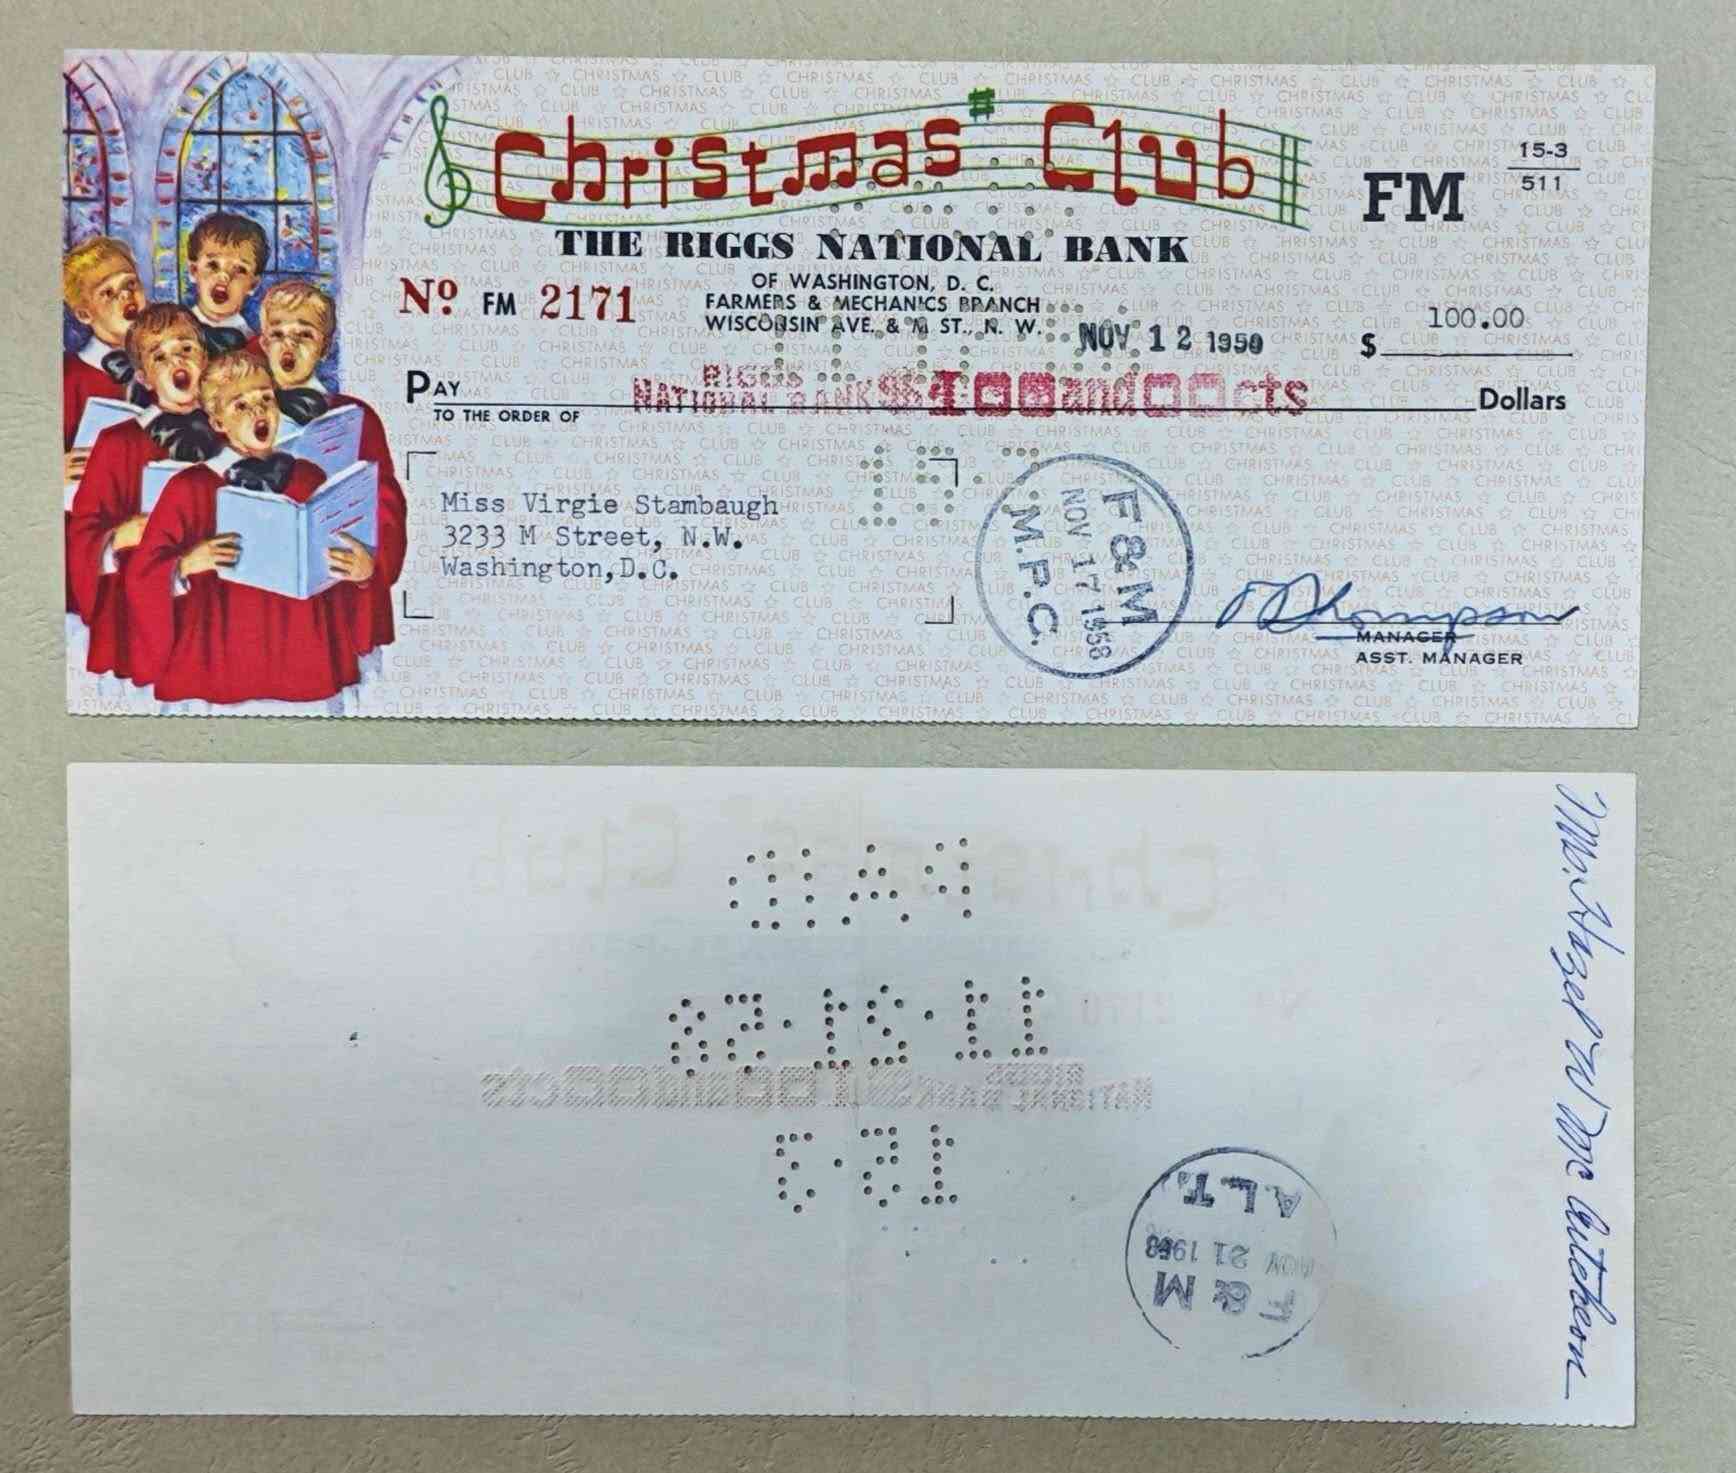 Christmas Club
THE RIGGS NATIONAL BANK
OF WASHINGTON, D. C.
FARMERS & MECHANICS BRANCH
WISCONSIN AVE. & M ST., N. W.
FM
15-3
511
Nº FM 2171
NOV 12 1958
$ 100.00
PAY
TO THE ORDER OF
RIGGS
NATIONAL BANK $100 and 00 cts
Dollars
Miss Virgie Stambaugh
3233 M Street, N.W.
Washington, D.C.
F & M
NOV 17 1958
M.P.C.
MANAGER
ASST. MANAGER
PAID
11·21·58
15·3
F & M
NOV 21 1958
A.L.T.
Mrs. Hazel W McCutcheon